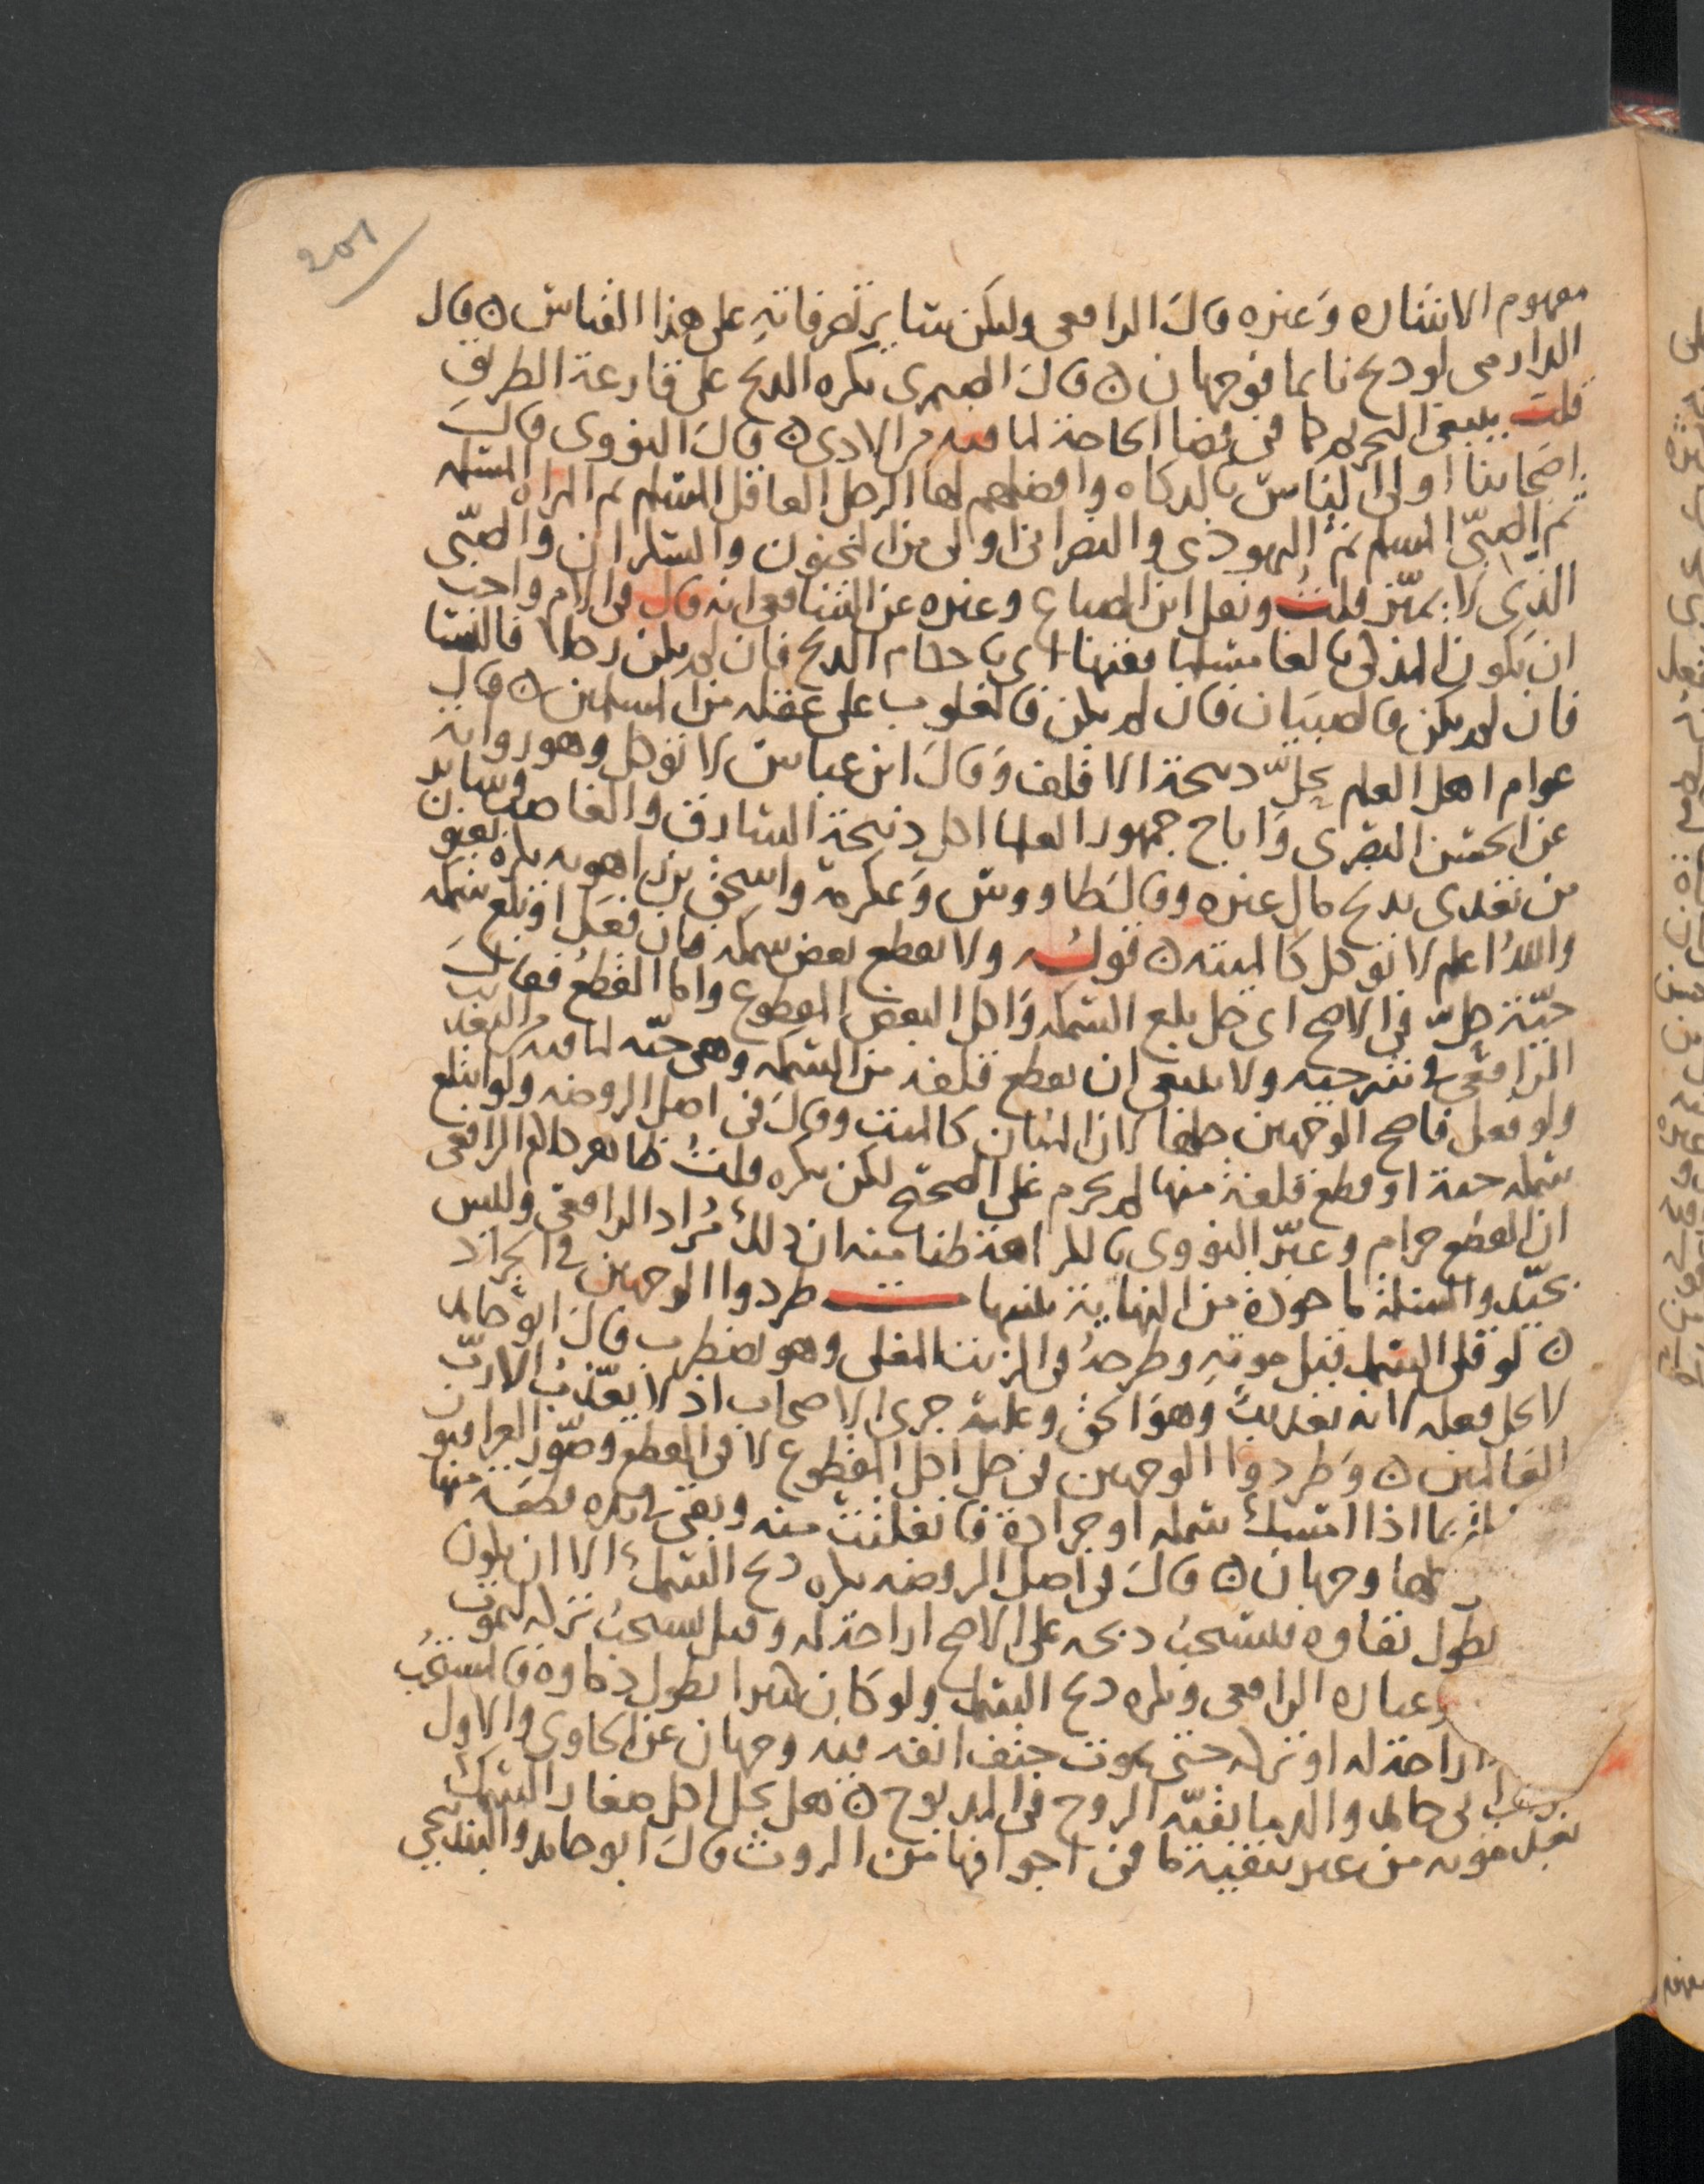 201
مفهوم الاشاره وغيره قال الرافعى وليكن سائر تصرفاته على هذا القياس ن قال
الدارمى لو ذبح نائما فوجهان ن قال الصيمرى يكره الذبح على قارعة الطريق
قلت ينبغى التحريم كما فى قضا الحاجة لما فيه من الاذى ن قال النووى قال
اصحابنا اولى الناس بالذكاه وافضلهم لها الرجل العاقل المسلم ثم المراه المسلمه
ثم الصبى المسلم ثم اليهودى والنصرانى اولى من المجنون والسكران والصبى
الذى لا يميز قلت ونقل ابن الصباغ وغيره عن الشافعى انه قال فى الام واحب
ان يكون المذكى بالغا مسلما فقيها اى باحكام الذبح فان لم يكن رجلا فالنسا
فان لم يكن فالصبيان فان لم يكن فالمغلوب على عقله من المسلمين ن قال
عوام اهل العلم يحل ذبيحة الاقلف وقال ابن عباس لا تؤكل وهو روايه
عن الحسن البصرى واباح جمهور العلما اكل ذبيحة السارق والغاصب وسائر
من تعدى بذبح مال غيره وقال طاووس وعكرمة واسحق بن راهويه يكره يعنون
والله اعلم لا تؤكل كالميته ن قوله ولا يقطع بعض سمكه فان فعل او بلع سمكه
حية حل فى الاصح اى حل بلع السمكه واكل البعض المقطوع واما القطع فقال
الرافعى فى شرحيه ولا ينبغى ان يقطع فلقه من السمكه وهى حيه لما فيه من التعذيب
ولو فعل فاصح الوجهين حلها لان المبان كالميت وقال فى اصل الروضه ولو ابتلع
سمكه حية او قطع فلقة منها لم يحرم على الصحيح لكن يكره قلت ظاهر كلام الرافعى
ان القطع حرام وعبر النووى بالكراهة ظنا منه ان ذلك مراد الرافعى وليس
بجيد والمسئلة ماخوذة من النهاية تنبيهات طردوا الوجهين فى الجراد
ن لو قلى السمك قبل موته وطرحه فى الزيت المغلى وهو يضطرب قال ابو حامد
لا يحل فعله لانه تعذيب وهو الحق وعليه جرى الاصحاب اذ لا يعذب الا رب
العالمين ن وطردوا الوجهين فى حل اكل المقطوع لا فى القطع وصور العراقيون
بما اذا امسك سمكه او جرادة فانفلتت منه وبقى فى يده قطعة منها
وجهان ن قال فى اصل الروضه يكره ذبح السمك الا ان يكون
يطول بقاوه فيستحب ذبحه على الاصح اراحة له وقيل يستحب تركه ليموت
وعباره الرافعى ويكره ذبح السمك ولو كان كبيرا يطول ذكاوه فالمستحب
اراحة له او تركه حتى يموت حتف انفه فيه وجهان عن الحاوى والاول
ابى حامد والدم ما بقيه الروح فى المذبوح ن هل يحل اكل صغار السمك
بعد موته من غير تنقية ما فى اجوافها من الروث قال ابو حامد والبندنيجى